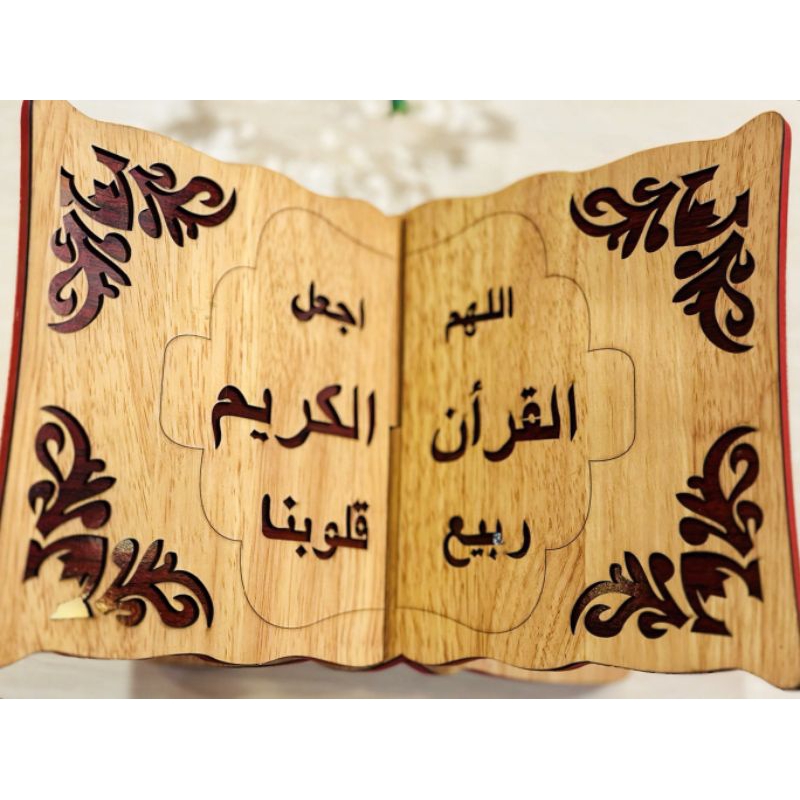 اللهم اجعل
القرأن الكريم
ربيع قلوبنا